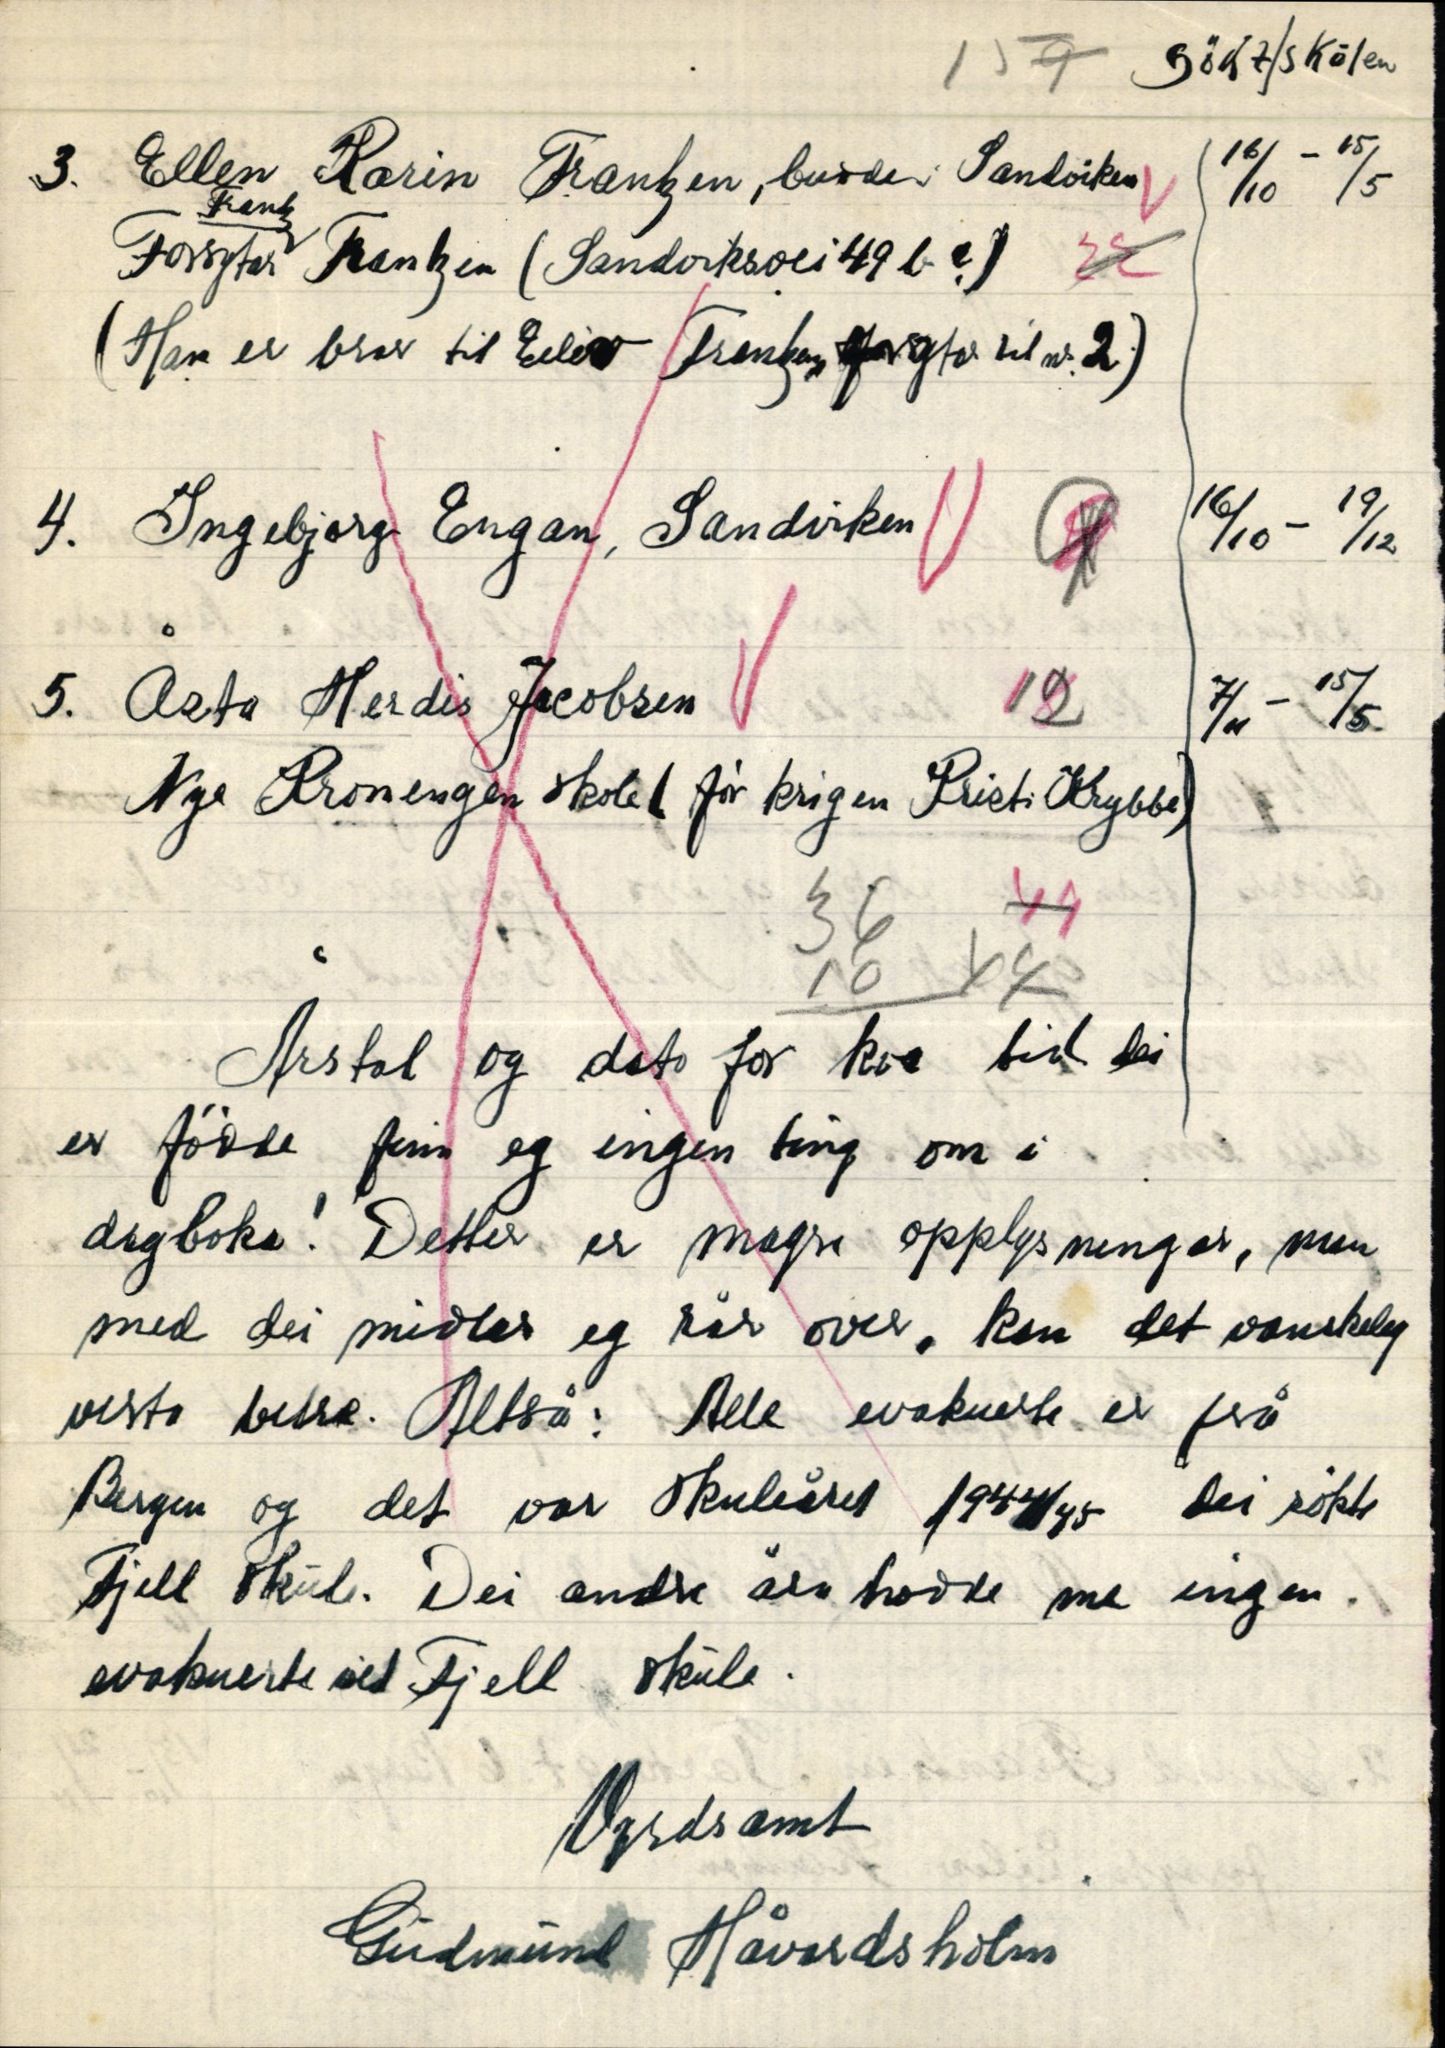 157 Sökt/skölen
3. Ellen Karin Frantzen, budde i Sandviken 16/10 – 15/5
Frantz
Forsytar Frantzen (Sandviksvei 49 b ?) 32
(Han er bror til Eiliv Frantzen, forsytar til nr. 2.)
4. Ingebjørg Engan, Sandviken 16/10 – 19/12
5. Åsta Herdis Jacobsen 12 7/11 – 15/5
Nye Kronengen skole ( før krigen Kristi Krybbe)
36 44
10 44
Årstal og dato for kva tid dei
er födde finn eg ingen ting om i
dagboka! Detter er magre opplysningar, men
med dei midlar eg rår over, kan det vanskeleg
verta betre. Altså: Alle evakuerte er frå
Bergen og det var skuleåret 1944/45 dei sökte
Fjell skule. Dei andre åra hadde me ingen
evakuerte ved Fjell skule.
Vyrdsamt
Gudmund Håvardsholm